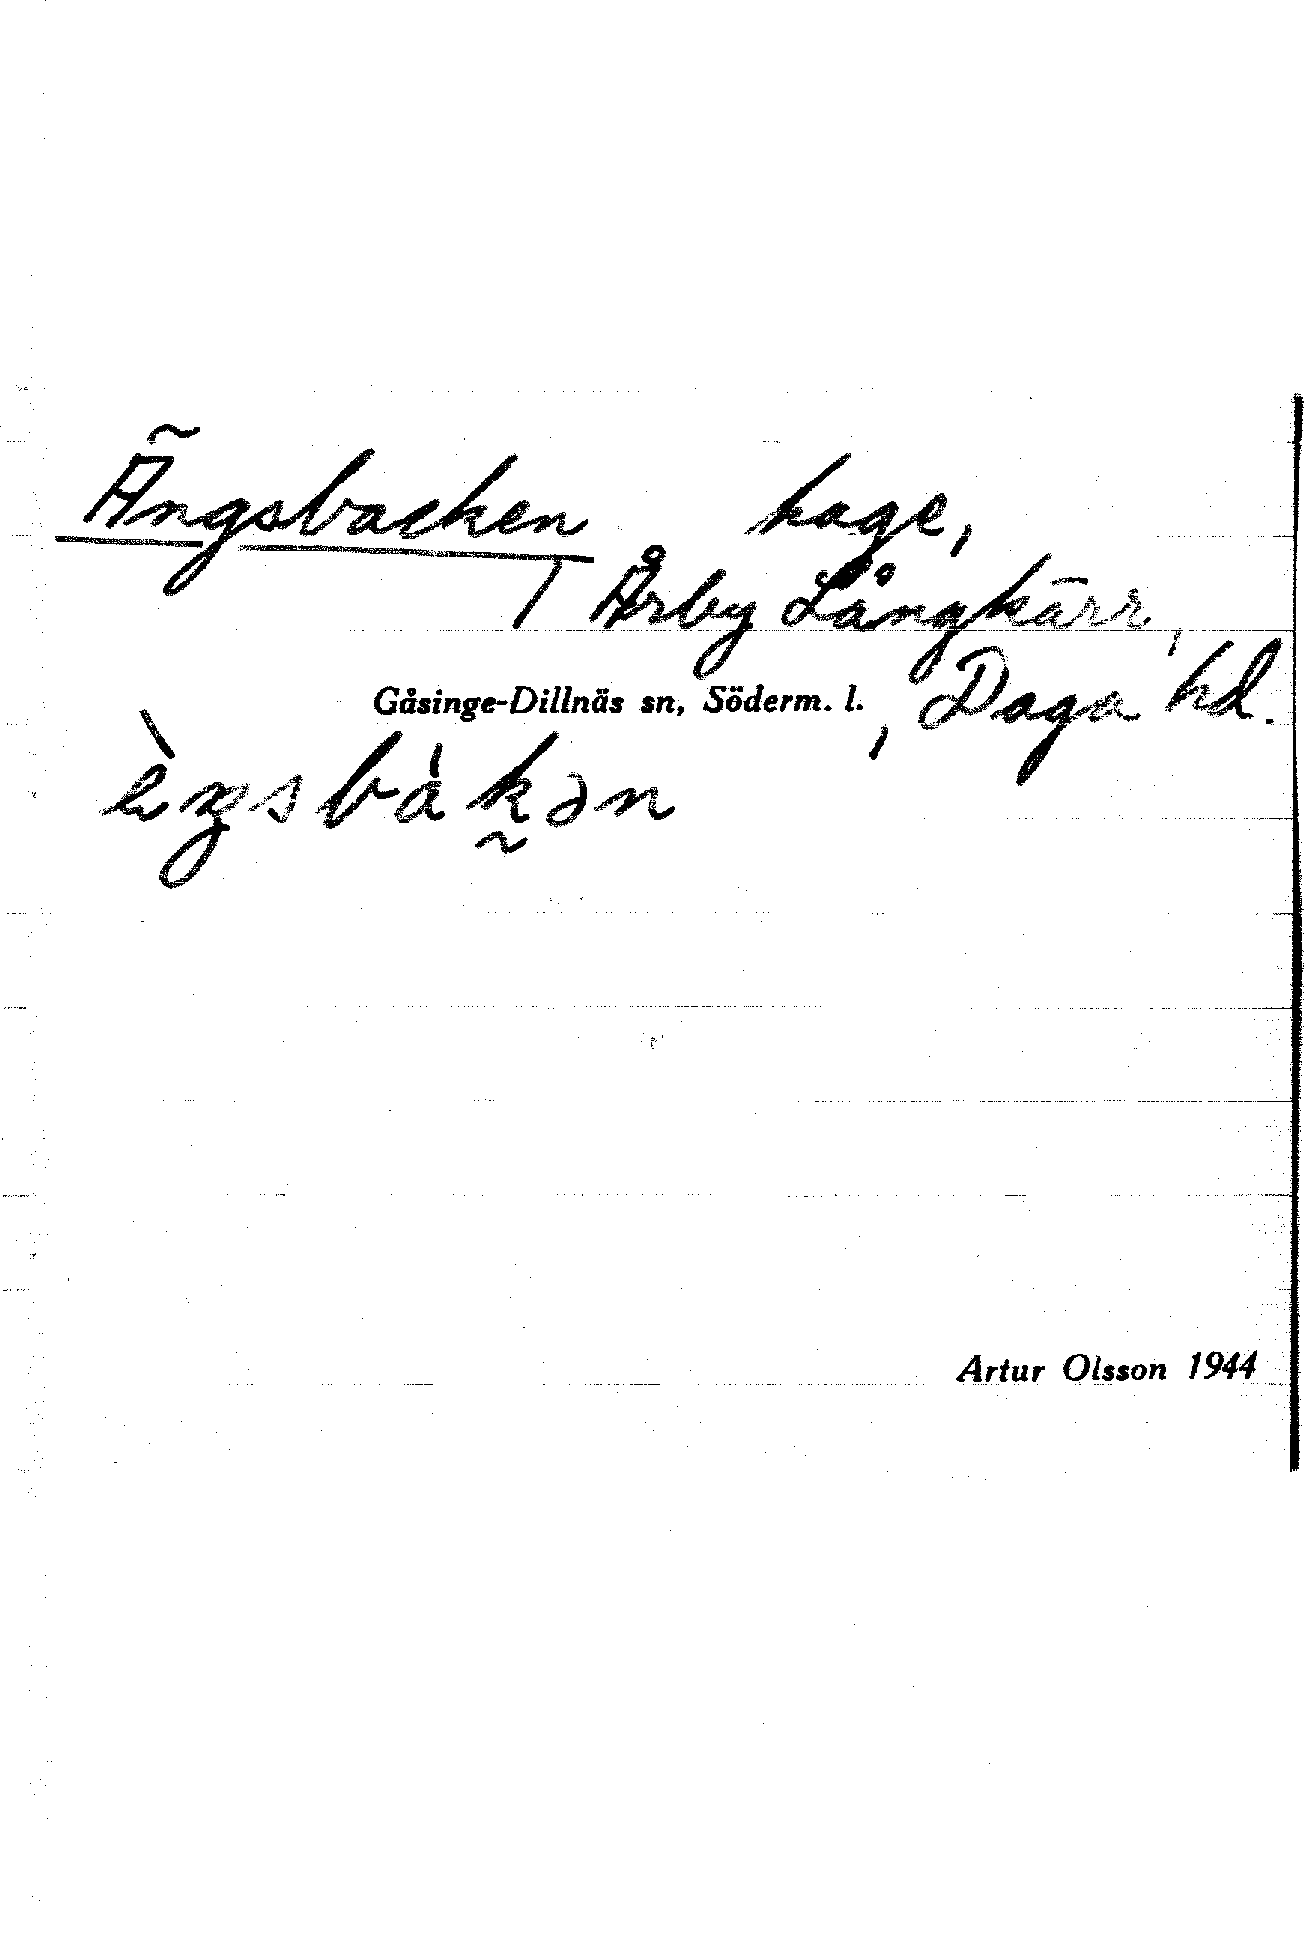 Ängsbacken hage,
/ Årby Långkärr,
Gåsinge-Dillnäs sn, Söderm. l., Daga hd.
èŋsbàk̰ən
Artur Olsson 1944